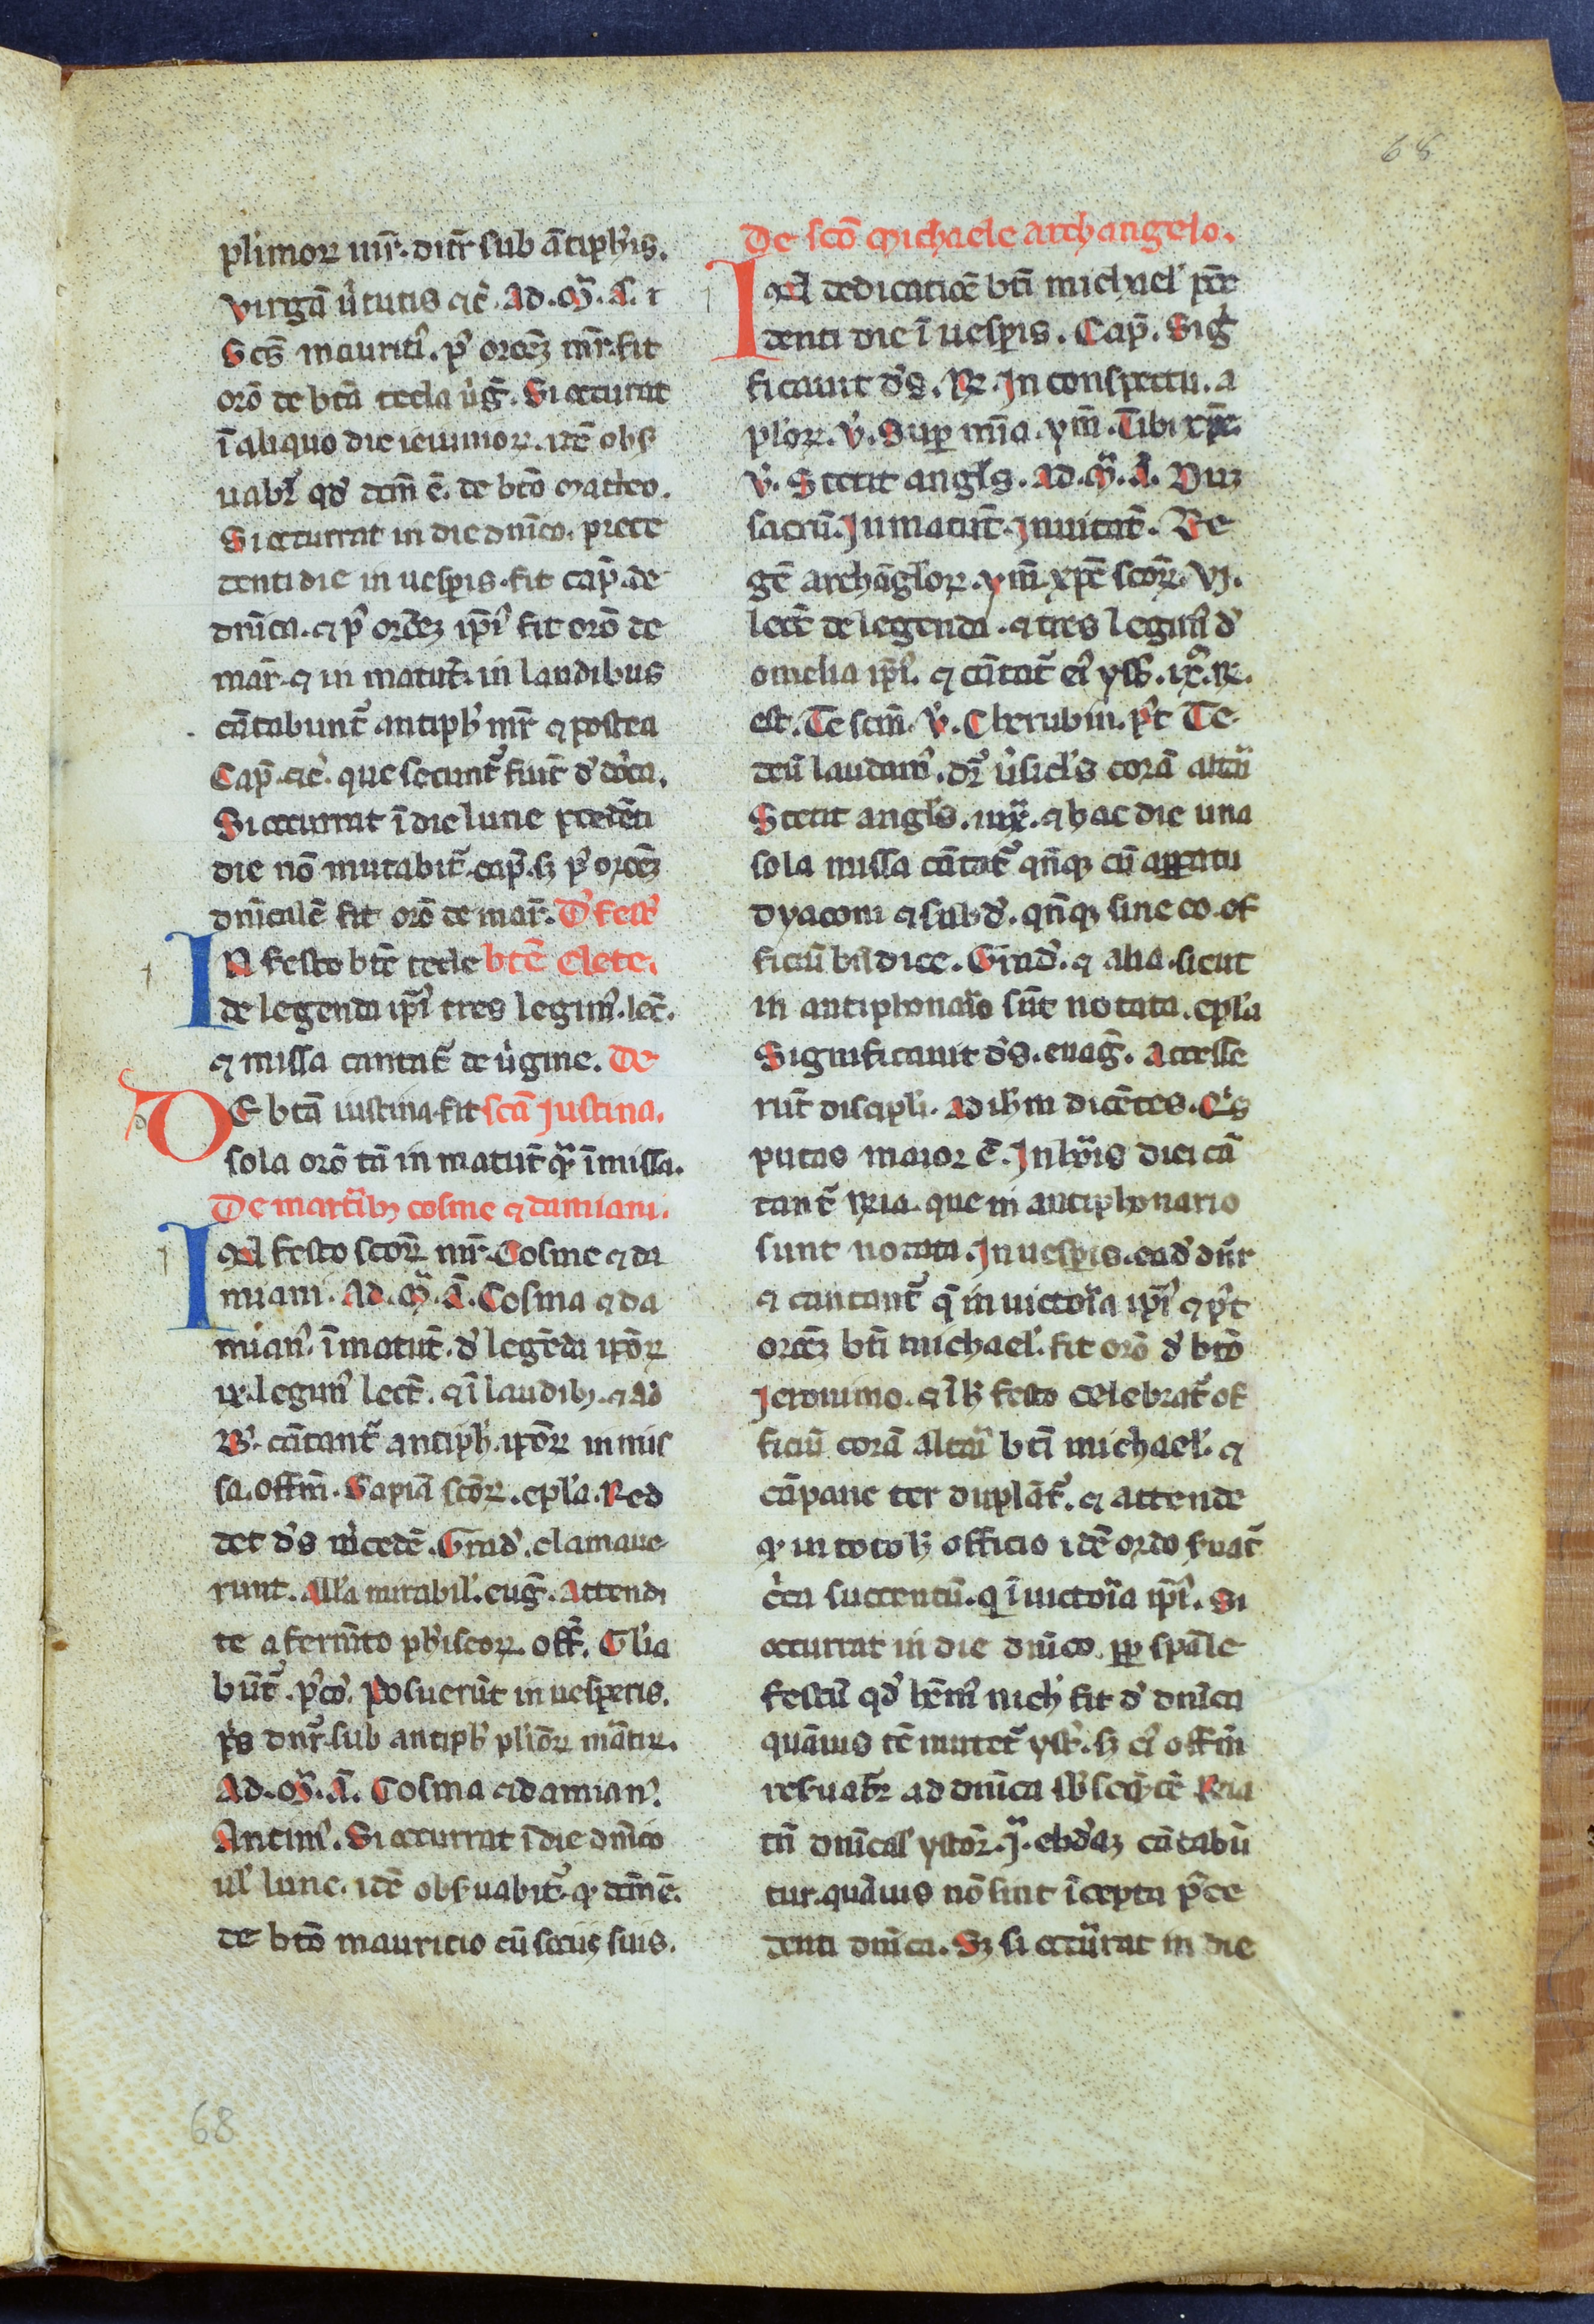 68
plimoꝝ mr̄. dn̄r sub ātiph̄is.
virgā u̾tutis ⁊c̄. Ad. ɱ̄. A. i
Scs̄ mauriti᷒. p᷒ or̄oēꝫ mr̄. fit
or̄o de btā tecla u̾g̅. Si occurrat
ī aliquo die ieiunioꝝ. idē obs̾
uabr̄ qd̾ dcm̄ ē. de btō matheo.
Si occurrat in die dn̄ico. prece
denti die in uesp̲is. fit cap̄. de
dn̄ica. ⁊ p᷒ or̄oēꝫ ip̄i᷒ fit or̄o de
mar̄. ⁊ in matut̄. in laudibus
cātabunt᷑ antiph̄ mr̄ ⁊ postea
Cap̄. ⁊c̄. que secunt᷑ fiūt d̾ dn̄ca.
Si occurrat ī die lune p̄cedēti
die nō mutabit᷑. cap̄. sꝫ p᷒ or̄oēꝫ
dn̄icalē fit or̄o de mar̄. D̾ fest᷒
IN festo btē tecle btē clete.
de legenda ip̄i᷒ tres legim᷒. lec̄.
⁊ missa cantat᷑ de u̾gine. De
DE btā iustina. fit scā Justina.
sola or̄o tm̄ in matut̄ qᷓ ī missa.
De martirib; cosme ⁊ damiani.
IN festo scōꝝ mr̄. Cosme ⁊ da
miani. Ad. ɱ̄. A. Cosma ⁊ da
mian᷒. ī matut̄. d̾ legēda ip̄oꝝ
ix. legim᷒ lect̄. ⁊ ī laudib;. ⁊ ad
B᷒. cātant᷑ antiph̄. ip̄oꝝ in mis
sa. offm̄. Sapiā scōꝝ. ep̄la. Red
det d̾s m̾cedē. Grad̾. clamaue
runt. All̾a mirabil̾. eug̅. Attendi
te a fermēto ph̾iseoꝝ. off̄. Gl̾ia
būt᷑. p᷒co᷒. Posuerūt in uesp̲is.
p̾s dn̄r sub antiph̄ pl̾ioꝝ mātir.
Ad. ɱ̄. A. Cosma ⁊ damian᷒.
Antim᷒. Si occurrat ī die dn̄ico
ul̾ lune. idē obs̾uabit᷑. qͥ dcm̄ ē.
de btō mauricio cū sociis suis.
De scō Michaele archangelo.
IN dedicatiōe bti michael̾ p̄ce
denti die ī uesp̲is. Cap̄. Sig̅
ficauit d̾s. ℟. In conspectu. a
n̄l̾oꝝ. ℣. Sup̲ mīa. ym̄. Tibi xp̄e.
℣. Stetit angl̾s. Ad. ɱ̄. A. Dum
sacrū. In matut̄. Inuitat̄. Re
gē archāgloꝝ. ym̄. xp̄e scōꝝ. VI.
lect̄ de legenda. ⁊ tres legim᷒ d̾
omelia ip̄i᷒. ⁊ cātat᷑ ei᷒ yst̾. ix. ℟.
est. Te scm̄. ℣. Cherubin. p᷒t Te
deū laudam᷒. dr̄ u̾sicl̾s corā altari
Stetit angl̾s. ⁊ hac die una
sola missa cātat᷑ qn̄q; cū apparatu
dyaconi ⁊ subd̾. qn̄q; sine eo. of
ficiū bn̄dice. Grad̾. ⁊ alia. sicut
in antiphonario sūt notata. epl̾a
Significauit d̾s. euag̅. Accesse
rūt discipl̾i. ad ih̄m dicētes. Qͥs
putas maior ē. In hͦris diei cā
tant᷑ ℟ia. que in antiphonario
sunt notata. In uesp̲is. ead̾ dn̄r
⁊ cantant᷑ q̄ in uictoria ip̄i᷒ ⁊ p᷒t
or̄oēꝫ bti michael̾. fit or̄o d̾ btō
Jeronimo. ⁊ ī h̄ festo celebrat᷑ of
ficiū corā altari bti michael̾. ⁊
cāpane ter duplāt᷑. ⁊ attende
qͥ in toto h̄ officio idē ordo s̾uat᷑
c̾ca succentū. q̄ ī uictoria ip̄i᷒. Si
occurrat in die dn̄ico. pp̲ spāle
festū qd̾ hēm᷒ nich̄ fit d̾ dn̄ica
quāuis tē mutet᷑ yst̾. sꝫ ei᷒ offm̄
res̾uabr̄ ad dn̄ica sb̾seqͣtē ℟ia
tn̄ dn̄ical̾ ystoꝝ. ebd̾aꝫ cātabū
tur. quāuis nō sint īcepta p᷒ce
denti dn̄ica. Sꝫ si occurrat in die
68